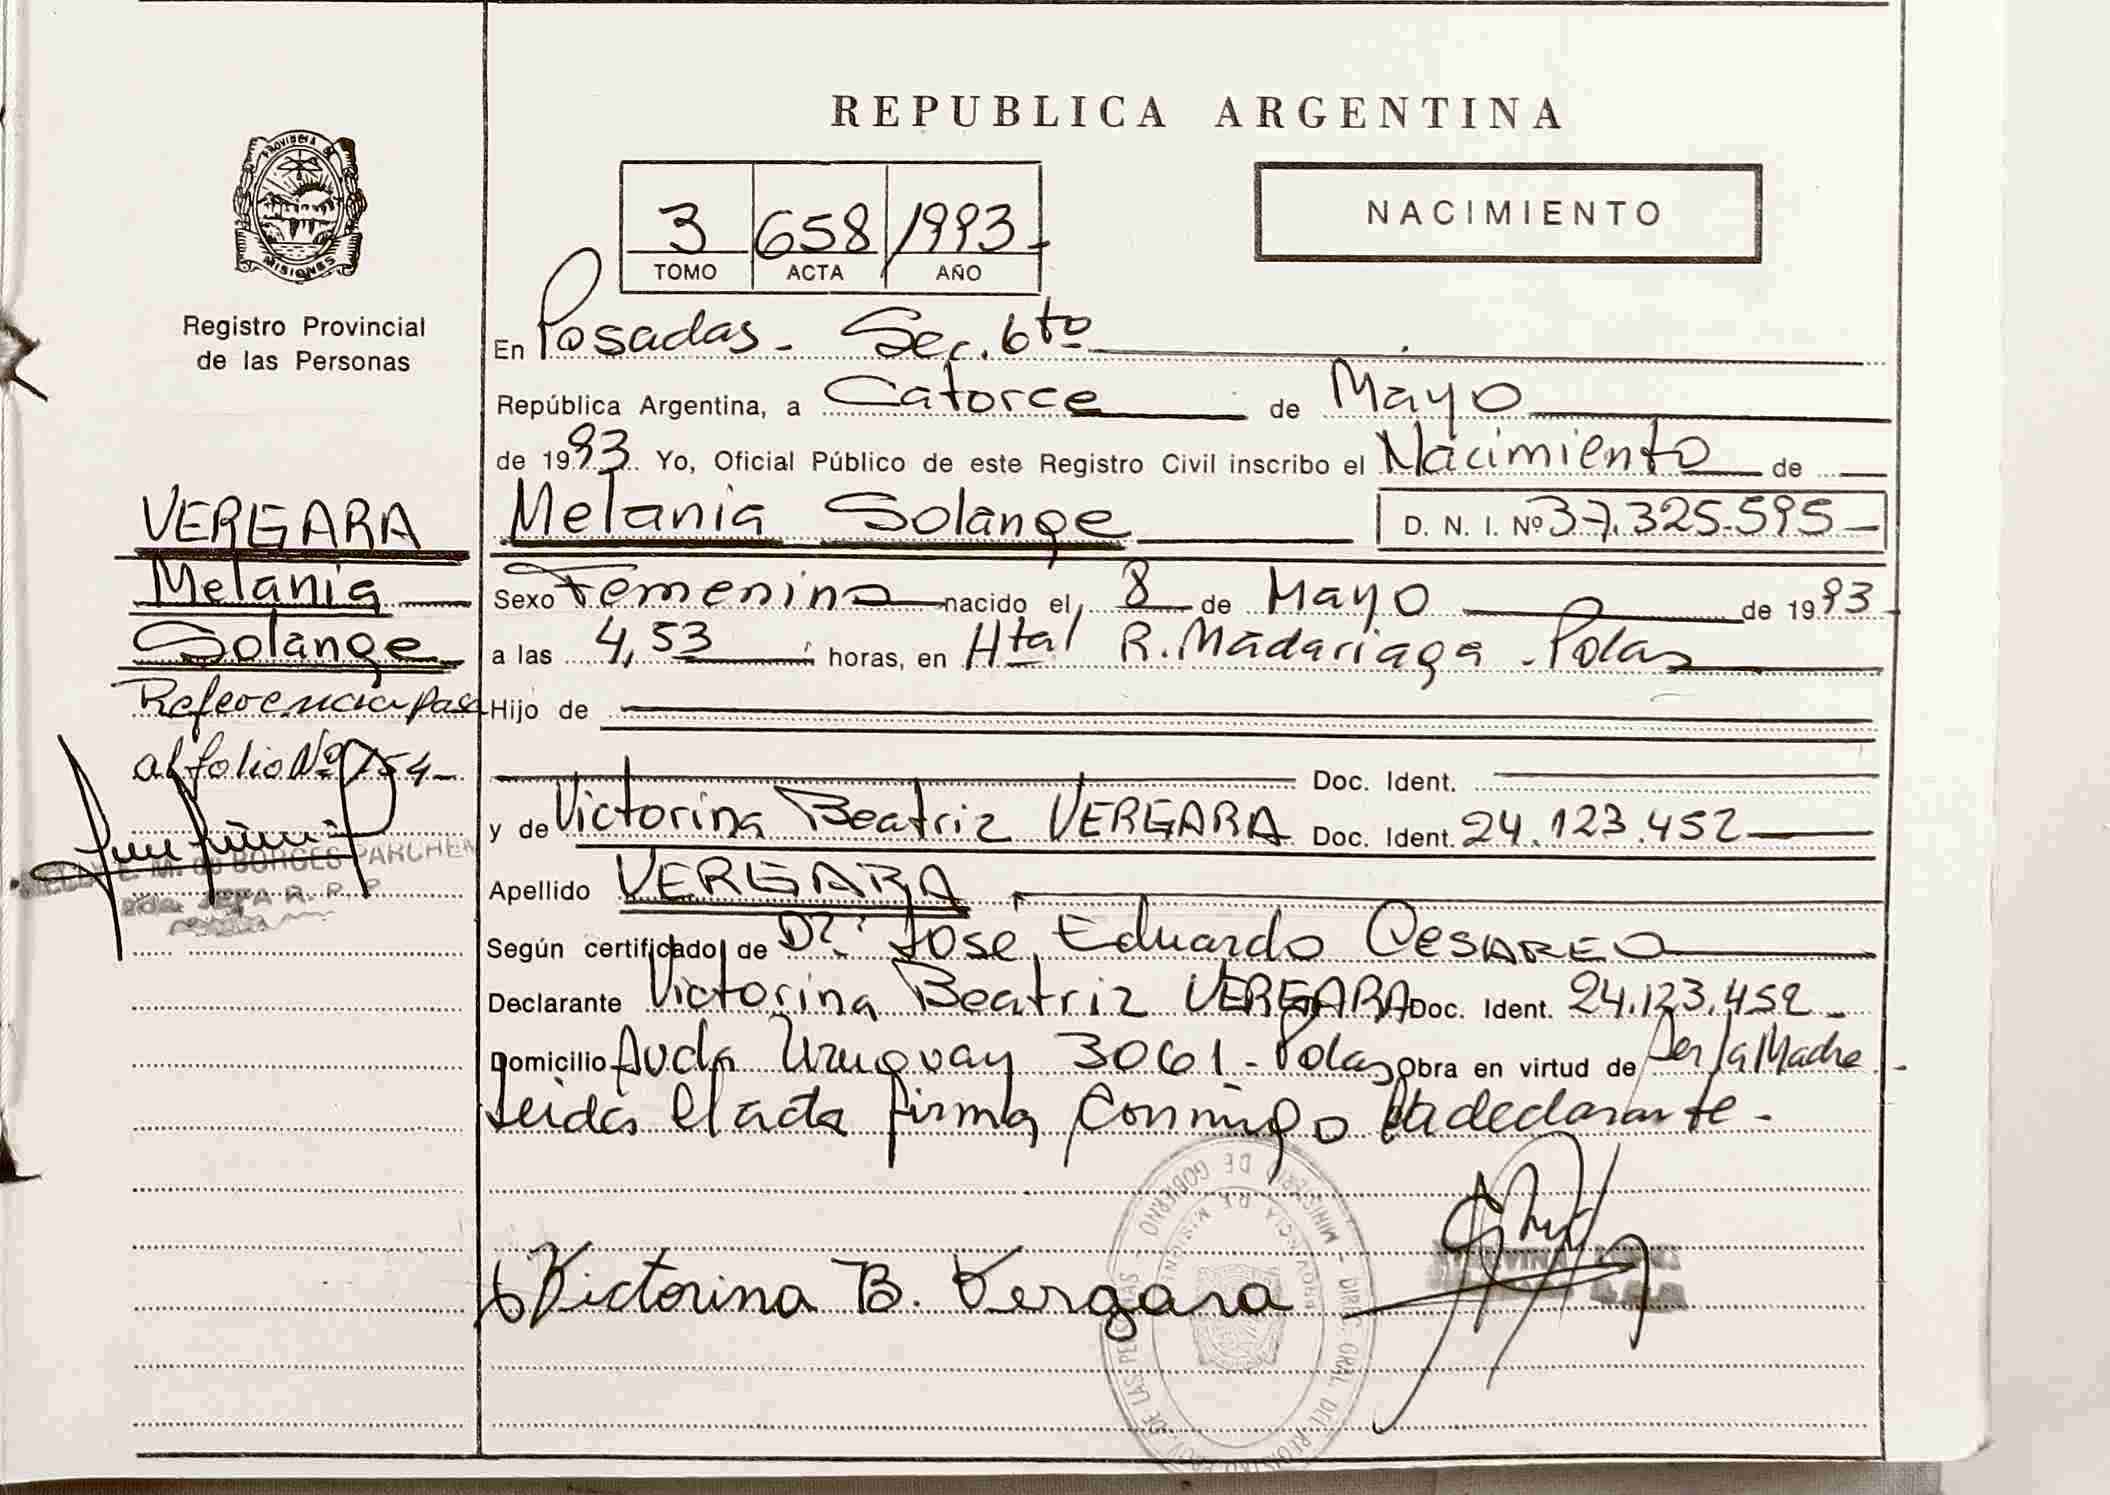 REPUBLICA ARGENTINA
PROVINCIA DE
MISIONES
Registro Provincial
de las Personas
3 658 1993
TOMO ACTA AÑO
NACIMIENTO
En Posadas - Sec. 6to
República Argentina, a Catorce de Mayo
de 1993. Yo, Oficial Público de este Registro Civil inscribo el Nacimiento de
Melania Solange D. N. I. Nº 37.325.595
Sexo Femenino nacido el 8 de Mayo de 1993
a las 4,53 horas, en Htal R. Madariaga - Pdas
Hijo de
Doc. Ident.
y de Victorina Beatriz VERGARA Doc. Ident. 24.123.452
Apellido VERGARA
Según certificado de Dr. José Eduardo CESAREO
Declarante Victorina Beatriz VERGARA Doc. Ident. 24.123.452
Domicilio Avda Uruguay 3061 - Pdas Obra en virtud de Ser la Madre
Leida el acta firma conmigo la declarante.
Victorina B. Vergara
VERGARA
Melania
Solange
Referencia pasa
al folio Nº 154
M. de BORGES PARCHEN
JEFA R. P. P.
MINISTERIO DE GOBIERNO - DIREC. GRAL. DEL REGISTRO PROV. DE LAS PERSONAS
PROVINCIA DE MISIONES